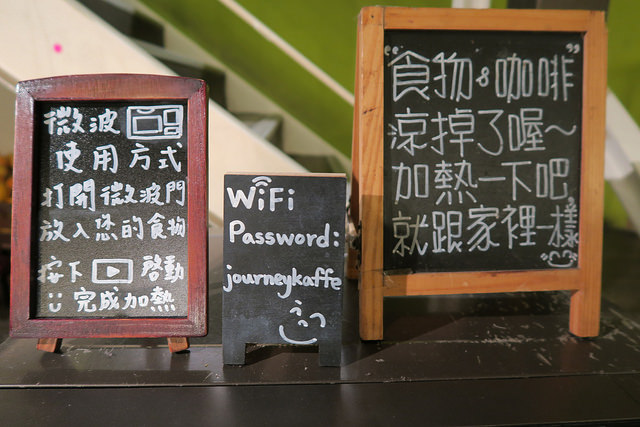 微波
使用方式
打開微波門
放入您的食物
按下 啓動
完成加熱
WiFi
Password:
journeykaffe
"食物&咖啡"
涼掉了喔~
加熱一下吧
就跟家裡一樣